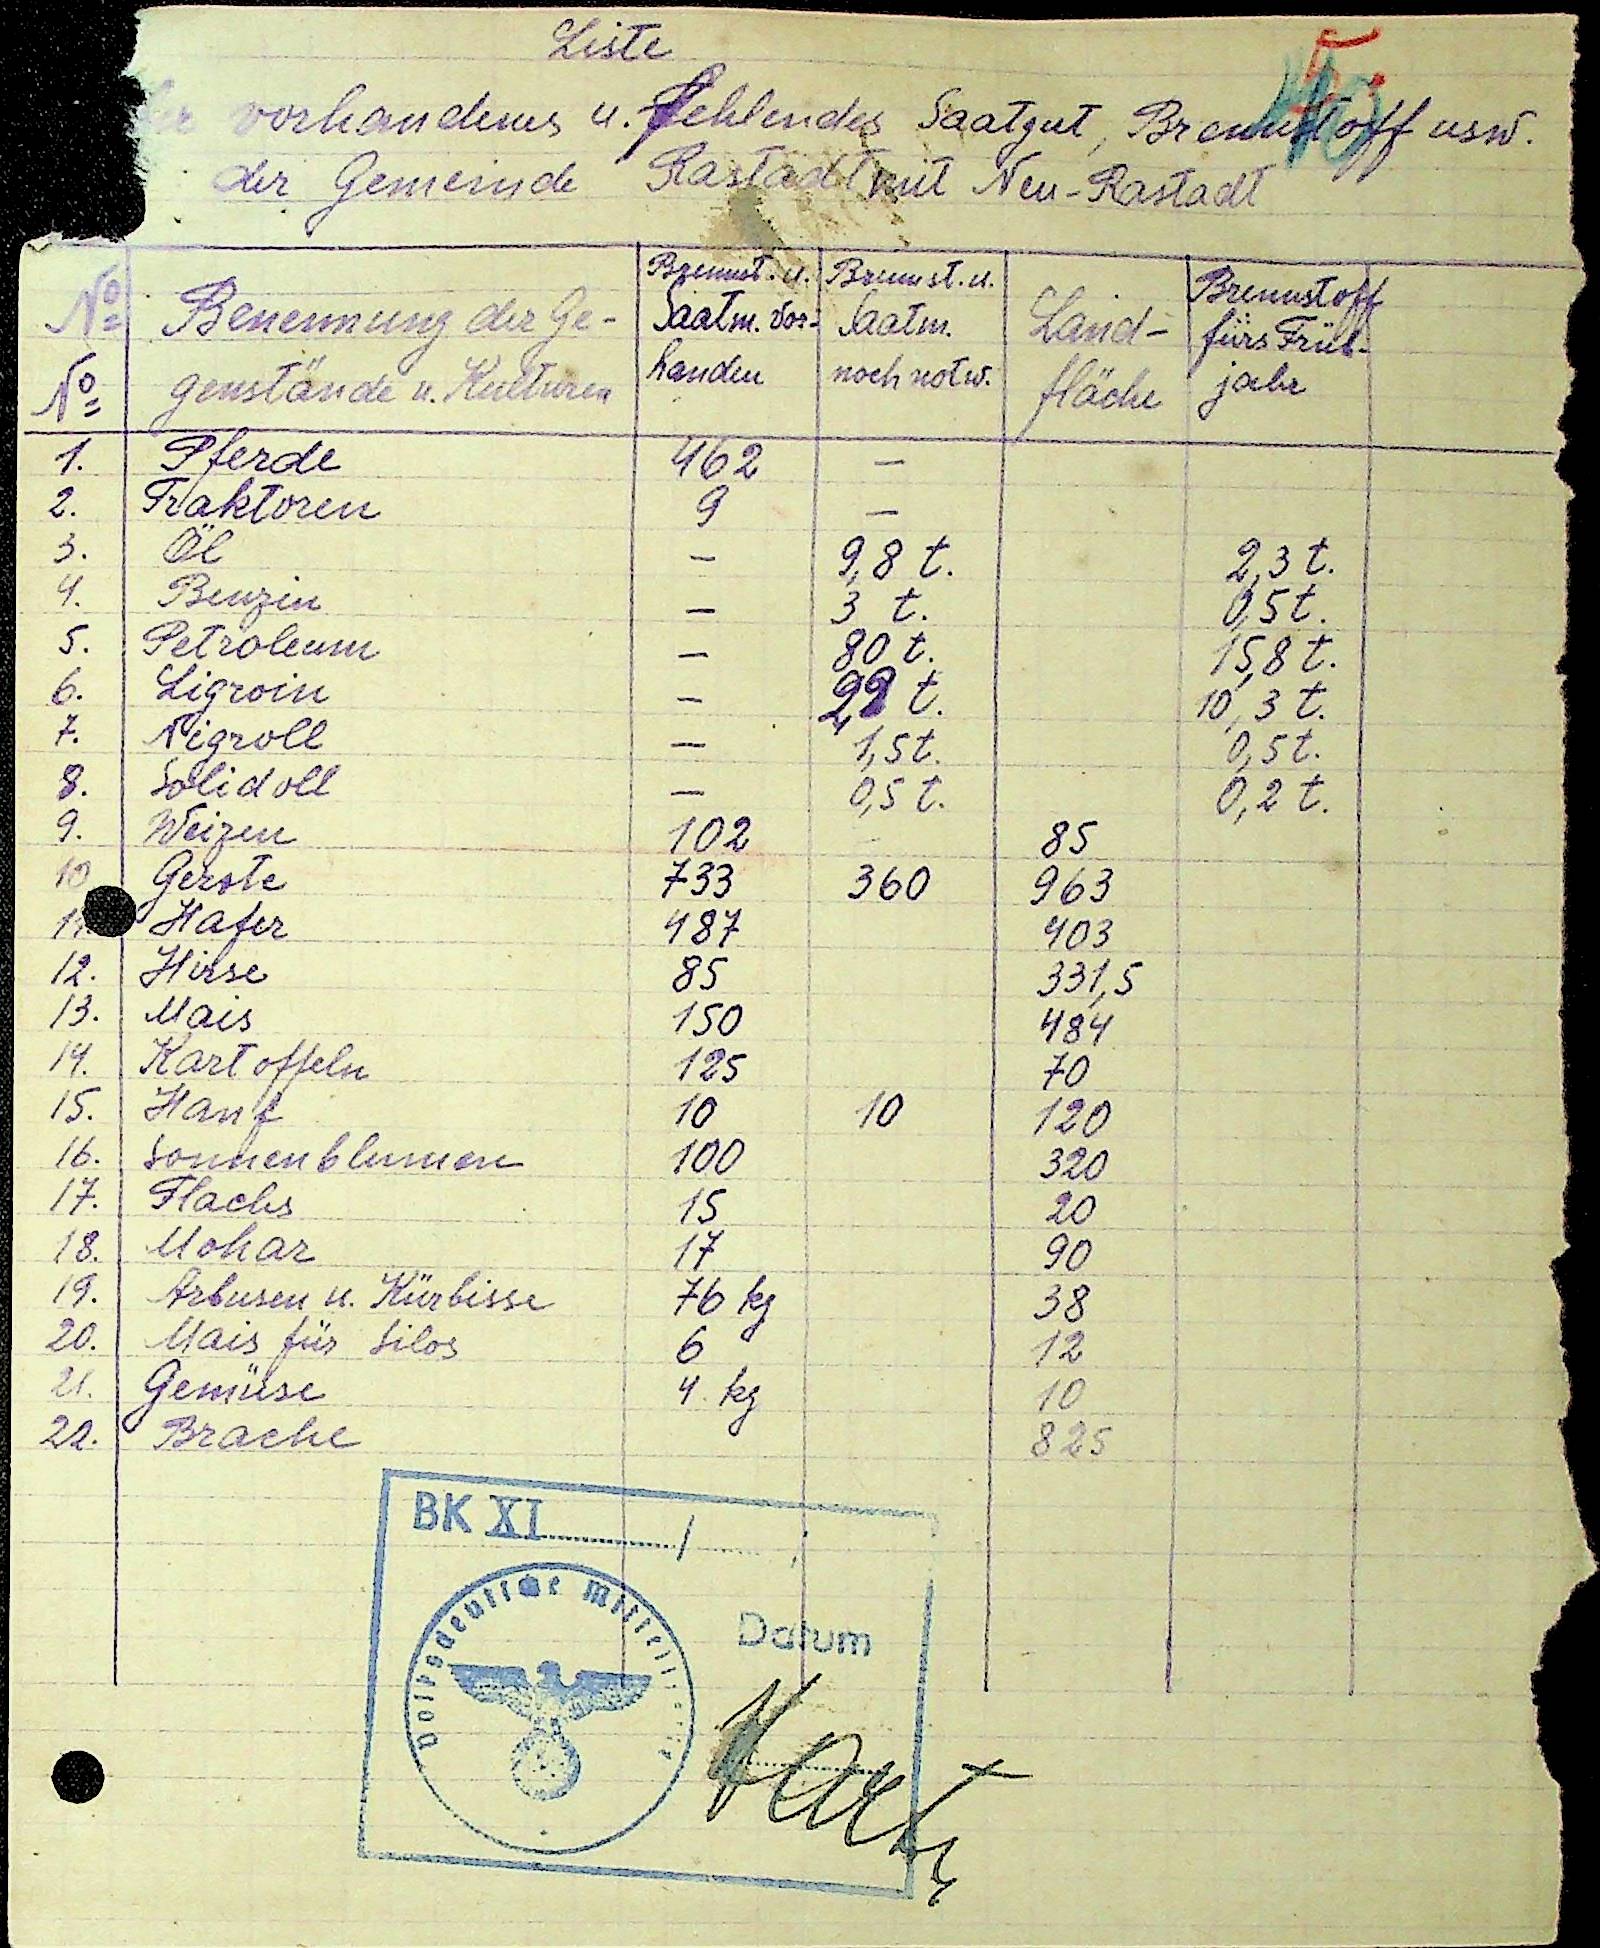 Liste
vorhandenes u. fehlendes Saatgut, Brennstoff usw.
der Gemeinde Rastadt mit Neu-Rastadt
№ № Benennung der Ge-genstände u. Kulturen Brennst. u. Saatm. vor-handen Brennst. u. Saatm. noch notw. Land-fläche Brennstoff fürs Früh-jahr
1. Pferde 462 —
2. Traktoren 9 —
3. Öl — 9,8 t. 2,3 t.
4. Benzin — 3 t. 0,5 t.
5. Petroleum — 80 t. 15,8 t.
6. Ligroin — t. 10,3 t.
7. Nigroll — 1,5 t. 0,5 t.
8. Solidoll — 0,5 t. 0,2 t.
9. Weizen 102 85
10 Gerste 733 360 963
11. Hafer 487 403
12. Hirse 85 331,5
13. Mais 150 484
14. Kartoffeln 125 70
15. Hanf 10 10 120
16. Sonnenblumen 100 320
17. Flachs 15 20
18. Mohar 17 90
19. Arbusen u. Kürbisse 76 kg 38
20. Mais für Silos 6 12
21. Gemüse 4 kg 10
22. Brache 825
BK XI /
Volksdeutsche Mittelstelle
Datum